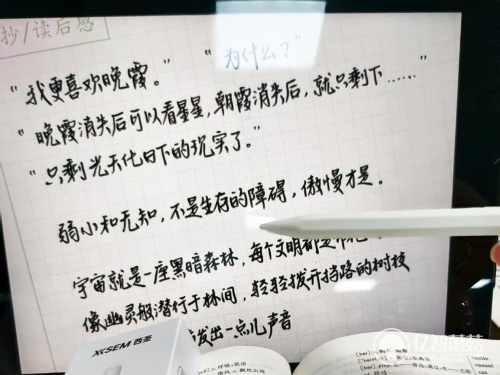 抄/读后感
"我更喜欢晚霞。" "为什么?"
"晚霞消失后可以看星星,朝霞消失后,就只剩下……"
"只剩光天化日下的现实了。"
弱小和无知,不是生存的障碍,傲慢才是。
宇宙就是一座黑暗森林,每个文明都是带
像幽灵般潜行于林间,轻轻拨开挡路的树枝
发出一点儿声音
XISEM 西圣
亿智蘑菇